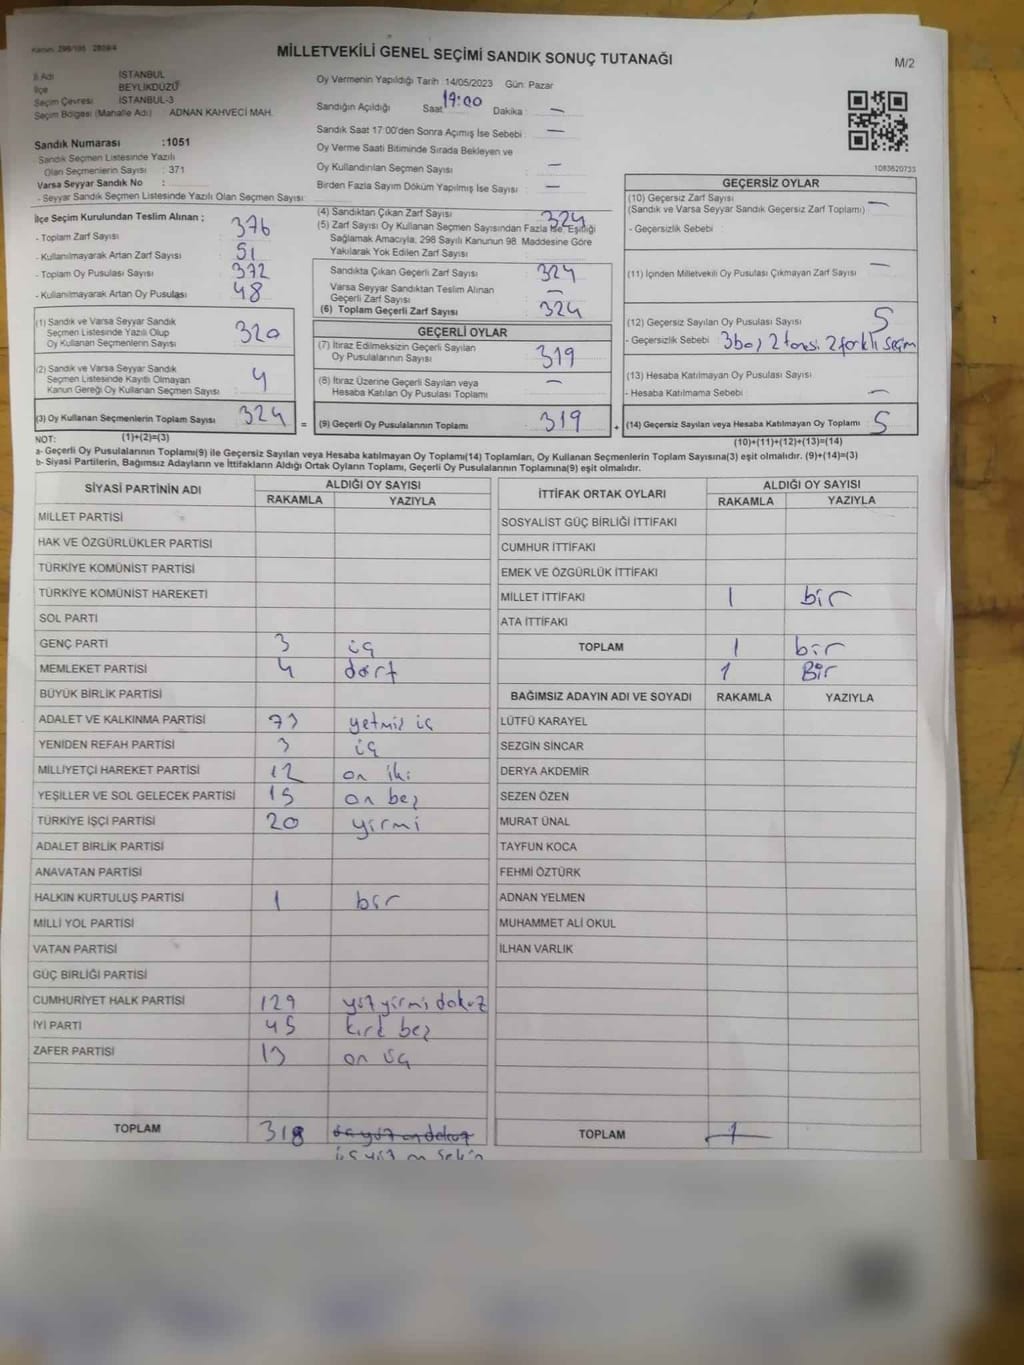 Kanun: 298/105 2839/4
MİLLETVEKİLİ GENEL SEÇİMİ SANDIK SONUÇ TUTANAĞI
M/2
İl Adı İSTANBUL
İlçe BEYLİKDÜZÜ
Seçim Çevresi İSTANBUL-3
Seçim Bölgesi (Mahalle Adı) ADNAN KAHVECİ MAH.
Oy Vermenin Yapıldığı Tarih :14/05/2023 Gün: Pazar
Sandığın Açıldığı Saat 19:00 Dakika : —
Sandık Saat 17:00'den Sonra Açımış İse Sebebi : —
Oy Verme Saati Bitiminde Sırada Bekleyen ve
Oy Kullandırılan Seçmen Sayısı : —
Birden Fazla Sayım Döküm Yapılmış İse Sayısı : —
1083620733
Sandık Numarası :1051
- Sandık Seçmen Listesinde Yazılı
Olan Seçmenlerin Sayısı : 371
Varsa Seyyar Sandık No :
- Seyyar Sandık Seçmen Listesinde Yazılı Olan Seçmen Sayısı :
İlçe Seçim Kurulundan Teslim Alınan ;
- Toplam Zarf Sayısı 376
- Kullanılmayarak Artan Zarf Sayısı : 51
- Toplam Oy Pusulası Sayısı 372
- Kullanılmayarak Artan Oy Pusulası 48
(1) Sandık ve Varsa Seyyar Sandık
Seçmen Listesinde Yazılı Olup
Oy Kullanan Seçmenlerin Sayısı 320
(2) Sandık ve Varsa Seyyar Sandık
Seçmen Listesinde Kayıtlı Olmayan
Kanun Gereği Oy Kullanan Seçmen Sayısı 4
(3) Oy Kullanan Seçmenlerin Toplam Sayısı 324
(1)+(2)=(3)
(4) Sandıktan Çıkan Zarf Sayısı 324
(5) Zarf Sayısı Oy Kullanan Seçmen Sayısından Fazla İse, Eşitliği
Sağlamak Amacıyla, 298 Sayılı Kanunun 98. Maddesine Göre
Yakılarak Yok Edilen Zarf Sayısı :
Sandıkta Çıkan Geçerli Zarf Sayısı 324
Varsa Seyyar Sandıktan Teslim Alınan
Geçerli Zarf Sayısı —
(6) Toplam Geçerli Zarf Sayısı 324
GEÇERLİ OYLAR
(7) İtiraz Edilmeksizin Geçerli Sayılan
Oy Pusulalarının Sayısı 319
(8) İtiraz Üzerine Geçerli Sayılan veya
Hesaba Katılan Oy Pusulası Toplamı —
= (9) Geçerli Oy Pusulalarının Toplamı 319
GEÇERSİZ OYLAR
(10) Geçersiz Zarf Sayısı —
(Sandık ve Varsa Seyyar Sandık Geçersiz Zarf Toplamı)
- Geçersizlik Sebebi :
(11) İçinden Milletvekili Oy Pusulası Çıkmayan Zarf Sayısı —
(12) Geçersiz Sayılan Oy Pusulası Sayısı 5
- Geçersizlik Sebebi : 3 boş 2 tanesi 2 farklı seçim
(13) Hesaba Katılmayan Oy Pusulası Sayısı
- Hesaba Katılmama Sebebi : —
+ (14) Geçersiz Sayılan veya Hesaba Katılmayan Oy Toplamı 5
(10)+(11)+(12)+(13)=(14)
NOT:
a- Geçerli Oy Pusulalarının Toplamı(9) ile Geçersiz Sayılan veya Hesaba katılmayan Oy Toplamı(14) Toplamları, Oy Kullanan Seçmenlerin Toplam Sayısına(3) eşit olmalıdır. (9)+(14)=(3)
b- Siyasi Partilerin, Bağımsız Adayların ve İttifakların Aldığı Ortak Oyların Toplamı, Geçerli Oy Pusulalarının Toplamına(9) eşit olmalıdır.
SİYASİ PARTİNİN ADI ALDIĞI OY SAYISI
RAKAMLA YAZIYLA
MİLLET PARTİSİ
HAK VE ÖZGÜRLÜKLER PARTİSİ
TÜRKİYE KOMÜNİST PARTİSİ
TÜRKİYE KOMÜNİST HAREKETİ
SOL PARTİ
GENÇ PARTİ 3 üç
MEMLEKET PARTİSİ 4 dört
BÜYÜK BİRLİK PARTİSİ
ADALET VE KALKINMA PARTİSİ 73 yetmiş üç
YENİDEN REFAH PARTİSİ 3 üç
MİLLİYETÇİ HAREKET PARTİSİ 12 on iki
YEŞİLLER VE SOL GELECEK PARTİSİ 15 on beş
TÜRKİYE İŞÇİ PARTİSİ 20 yirmi
ADALET BİRLİK PARTİSİ
ANAVATAN PARTİSİ
HALKIN KURTULUŞ PARTİSİ 1 bir
MİLLİ YOL PARTİSİ
VATAN PARTİSİ
GÜÇ BİRLİĞİ PARTİSİ
CUMHURİYET HALK PARTİSİ 129 yüz yirmi dokuz
İYİ PARTİ 45 kırk beş
ZAFER PARTİSİ 13 on üç
TOPLAM 318 üç yüz on dokuz
üç yüz on sekiz
İTTİFAK ORTAK OYLARI ALDIĞI OY SAYISI
RAKAMLA YAZIYLA
SOSYALİST GÜÇ BİRLİĞİ İTTİFAKI
CUMHUR İTTİFAKI
EMEK VE ÖZGÜRLÜK İTTİFAKI
MİLLET İTTİFAKI 1 bir
ATA İTTİFAKI
TOPLAM 1 bir
1 Bir
BAĞIMSIZ ADAYIN ADI VE SOYADI RAKAMLA YAZIYLA
LÜTFÜ KARAYEL
SEZGİN SİNCAR
DERYA AKDEMİR
SEZEN ÖZEN
MURAT ÜNAL
TAYFUN KOCA
FEHMİ ÖZTÜRK
ADNAN YELMEN
MUHAMMET ALİ OKUL
İLHAN VARLIK
TOPLAM 1